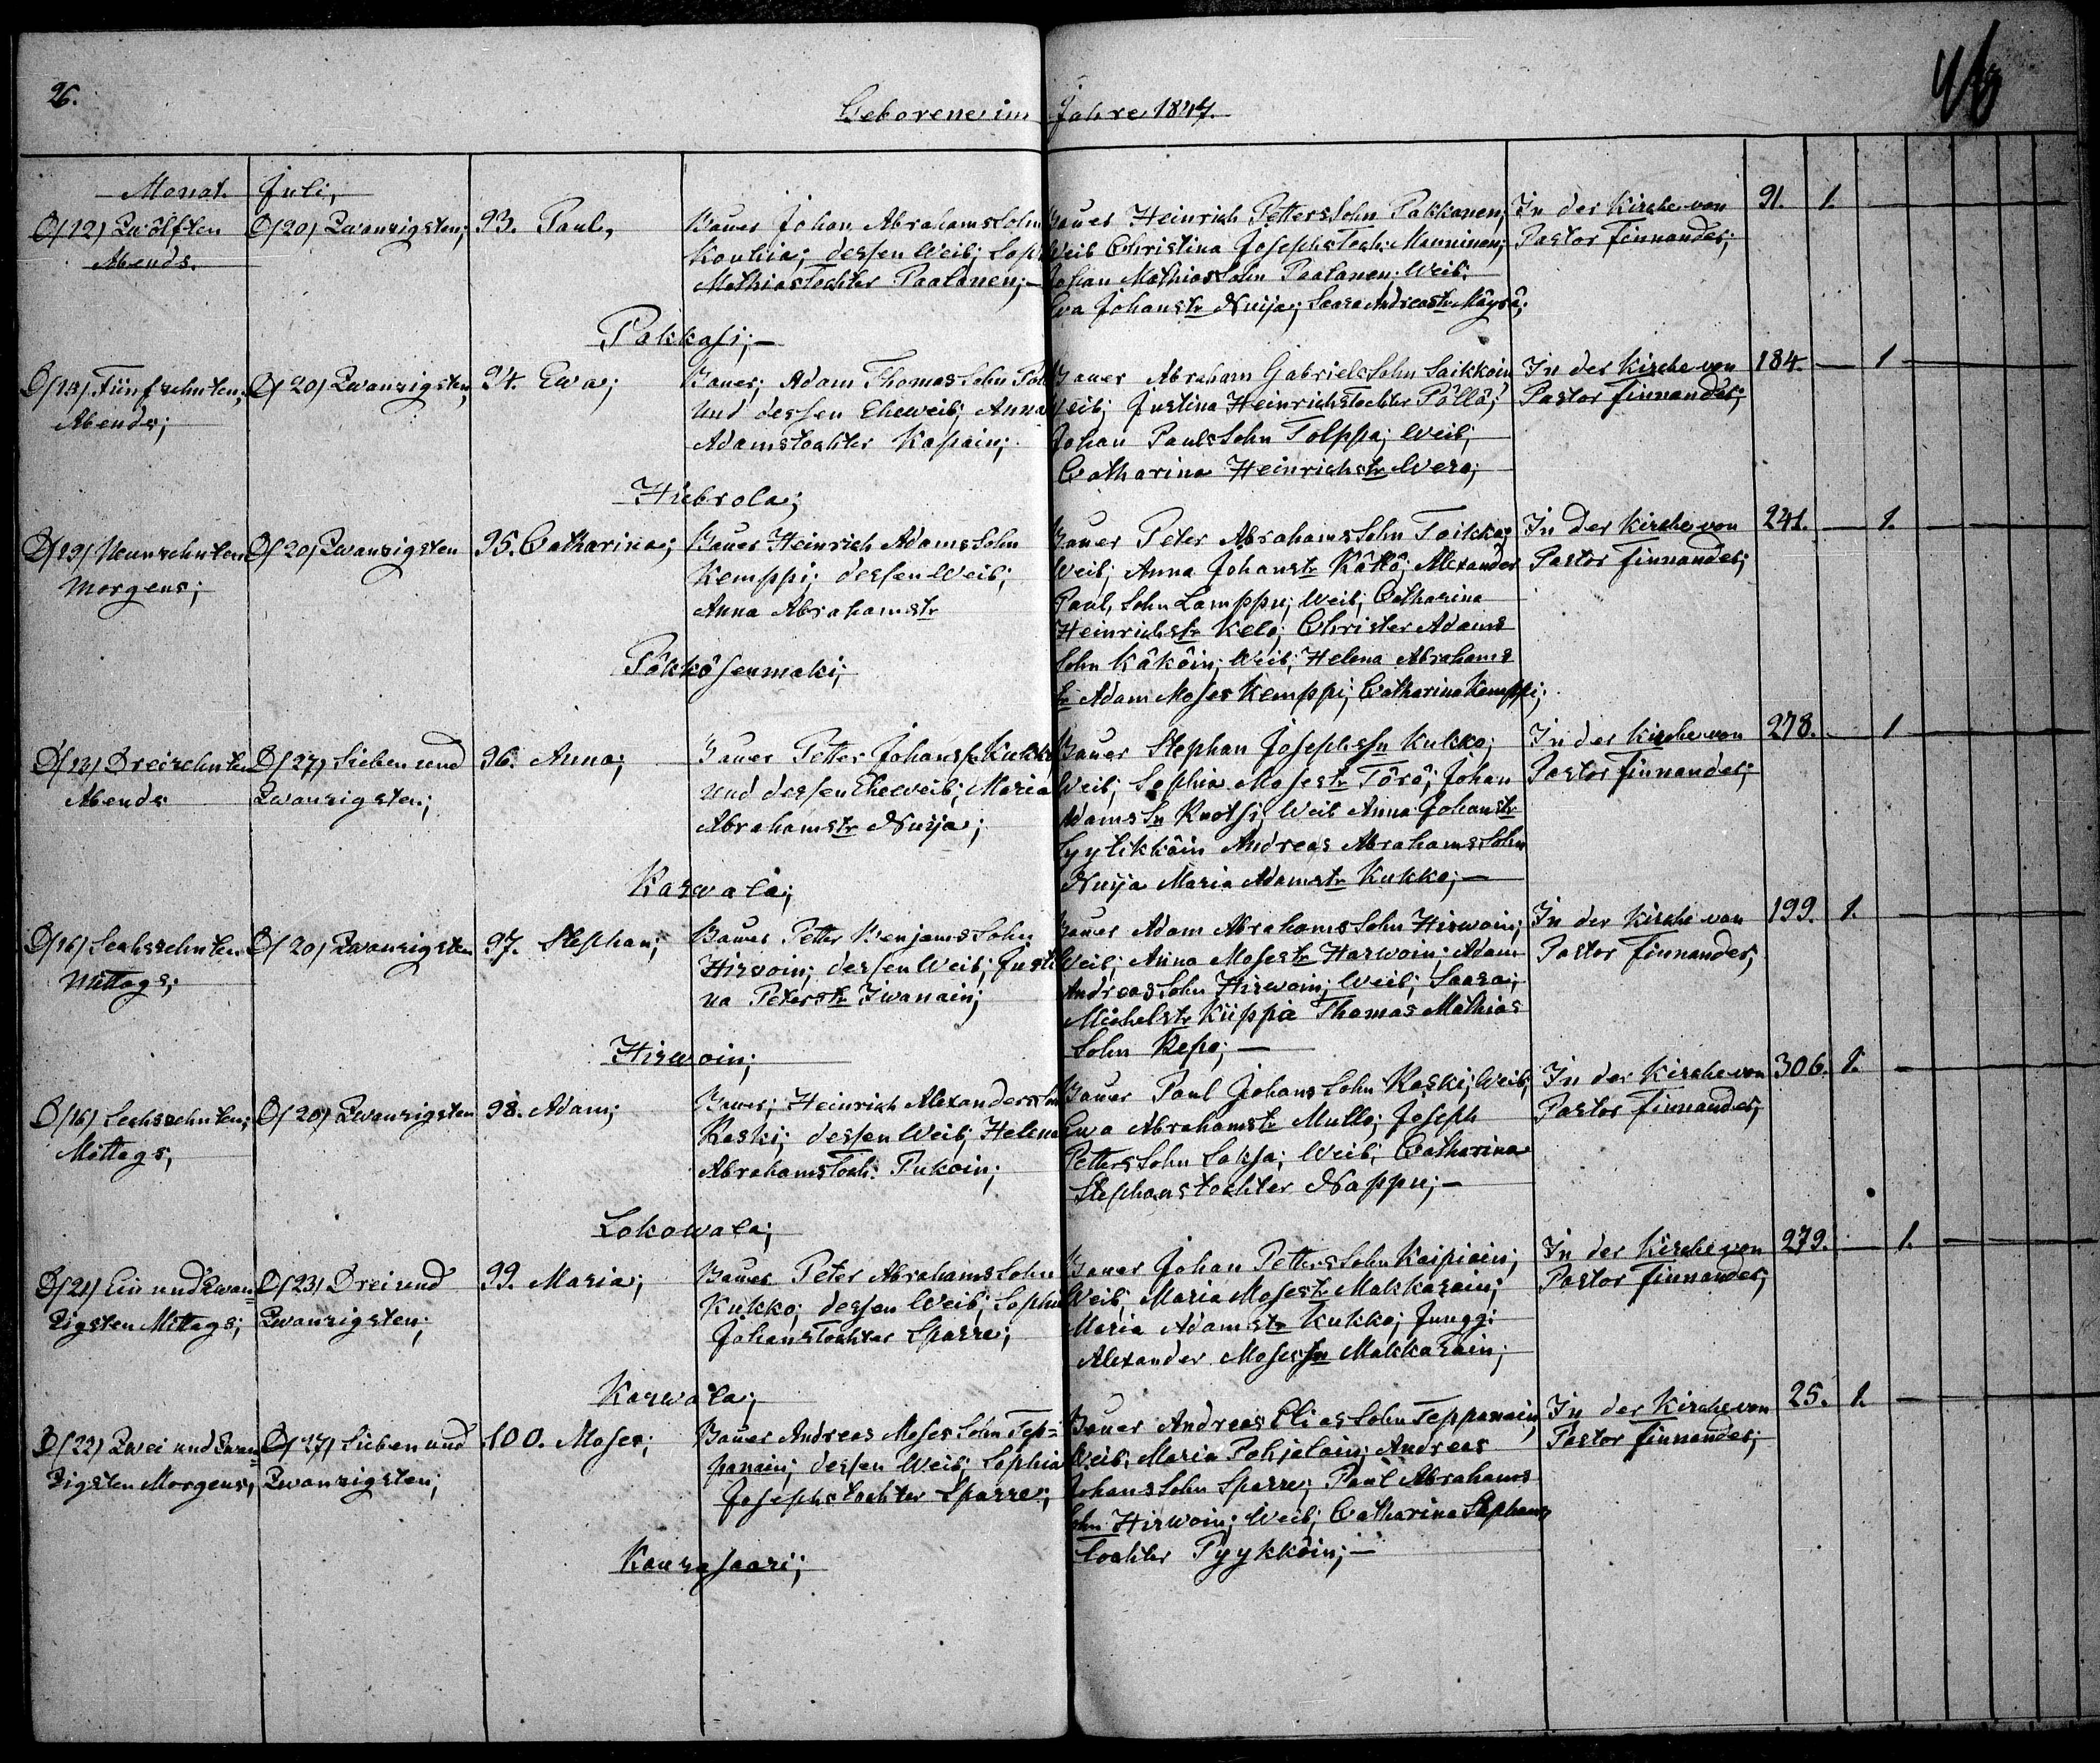 26.
Geborene im Jahre 1847.
Monat Juli,
D/12/ Zwölften
Abends.
D/20/ Zwanzigsten;
93. Paul,
Bauer Johan Abrahams Sohn
Koukia; dessen Weib; Soph
Mathias Tochter Paalanen;—
Bauer Heinrich Petters Sohn Pakkanen;
Weib Christina Josephs Toch: Manninen;
Johan Mathias Sohn Paalanen. Weib;
Eva Johanstr Nuija; Saara Andreastr Mäyrä;
In der Kirche von
Pastor Finnander;
91. 1.
Pakkasi;—
Fünfzehnten,
Abends;
D/20/ Zwanzigsten,
94. Ewa;
Bauer; Adam Thomas Sohn
und dessen Eheweib; Anna
Adamstochter Kapain;
Bauer Abraham Gabriels Sohn Saikkoin
Weib; Justina Heinrichstochter Pöllä;
Johan Pauls Sohn Tolppa; Weib;
Catharina Heinrichstr Wera;
In der Kirche von
Pastor Finnander;
184. — 1
Hiebrola;
D/19/ Neunzehnten
Morgens;
D/20/ Zwanzigsten
95. Catharina;
Bauer Heinrich Adams Sohn
Kemppi; dessen Weib;
Anna Abrahamstr
Bauer Peter Abrahams Sohn Toikka;
Weib; Anna Johanstr Kätkä; Alexander
Paul, Sohn Lamppu; Weib; Catharina
Heinrichstr Kelo; Christer Adams
Sohn Käköin; Weib; Helena Abrahams
tr Adam Moses Kemppi; Catharina Kemppi;
In der Kirche von
Pastor Finnander;
241. — 1.
Pökkösenmaki;
D/13/ Dreizehnten
Abends
D/27/ Sieben und
Zwanzigsten;
96. Anna;
Bauer Petter Johansn Kukko
und dessen Eheweib; Maria
Abrahamstr Nuija;
Bauer Stephan Josephssn Kukko;
Weib; Sophia Mosestr Törö; Johan
Adamssn Ruotsi; Weib Anna Johanstr
Syylikköin Andreas Abrahams Sohn
Nuija Maria Adamstr Kukko;—
In der Kirche von
Pastor Finnander;
278. — 1
Karwala;
D/16/ Sechszehnten
Mittags;
D/20/ Zwanzigsten
97. Stephan;
Bauer Petter Benjams Sohn
Hirwoin; dessen Weib; Justi
na Peterstr Iwanain;
Bauer Adam Abrahams Sohn Hirwoin;
Weib; Anna Mosestr Harwoin; Adam
Andreas Sohn Hirwoin; Weib; Saara;
Michelstr Kiippa Thomas Mathias
Sohn Repo;—
In der Kirche von
Pastor Finnander;
199. 1.
Hirwoin;
D/16/ Sechszehnten;
Mittags;
D/20/ Zwanzigsten
98. Adam;
Bauer; Heinrich Alexanders
Raski; dessen Weib; Helena
Abrahams Toch: Pukoin;
Bauer Paul Johans Sohn Raski; Weib;
Ewa Abrahamstr Mullo; Joseph
Petters Sohn Saksa; Weib; Catharina
Stephanstochter Nappu;—
In der Kirche von
Pastor Finnander;
306. 1.
Lokowala;
D/21/ Ein und Zwan
Zigsten Mittags;
D/23/ Drei und
Zwanzigsten;
99. Maria;
Bauer Peter Abrahams Sohn
Kukko; dessen Weib; Sophia
Johanstochter Sparre;
Bauer Johan Petters Sohn Kaipiain;
Weib; Maria Mosestr Makkarain;
Maria Adamstr Kukko; Junggi
Alexander Mosessn Makkarain;
In der Kirche von
Pastor Finnander;
279. — 1.
Karwala;
D/22/ Zwei und Zwan
Zigsten Morgens;
D/27/ Sieben und
Zwanzigsten;
100. Moses;
Bauer Andreas Moses Sohn Tep=
panain; dessen Weib; Sophia
Josephstochter Sparre;
Bauer Andreas Elias Sohn Teppanain;
Weib; Maria Pohjalain; Andreas
Johans Sohn Sparre; Paul Abrahams
Sohn Hirwoin; Weib; Catharina Stephans
tochter Pyykköin;—
In der Kirche von
Pastor Finnander;
25. 1.
Kaurasaari;